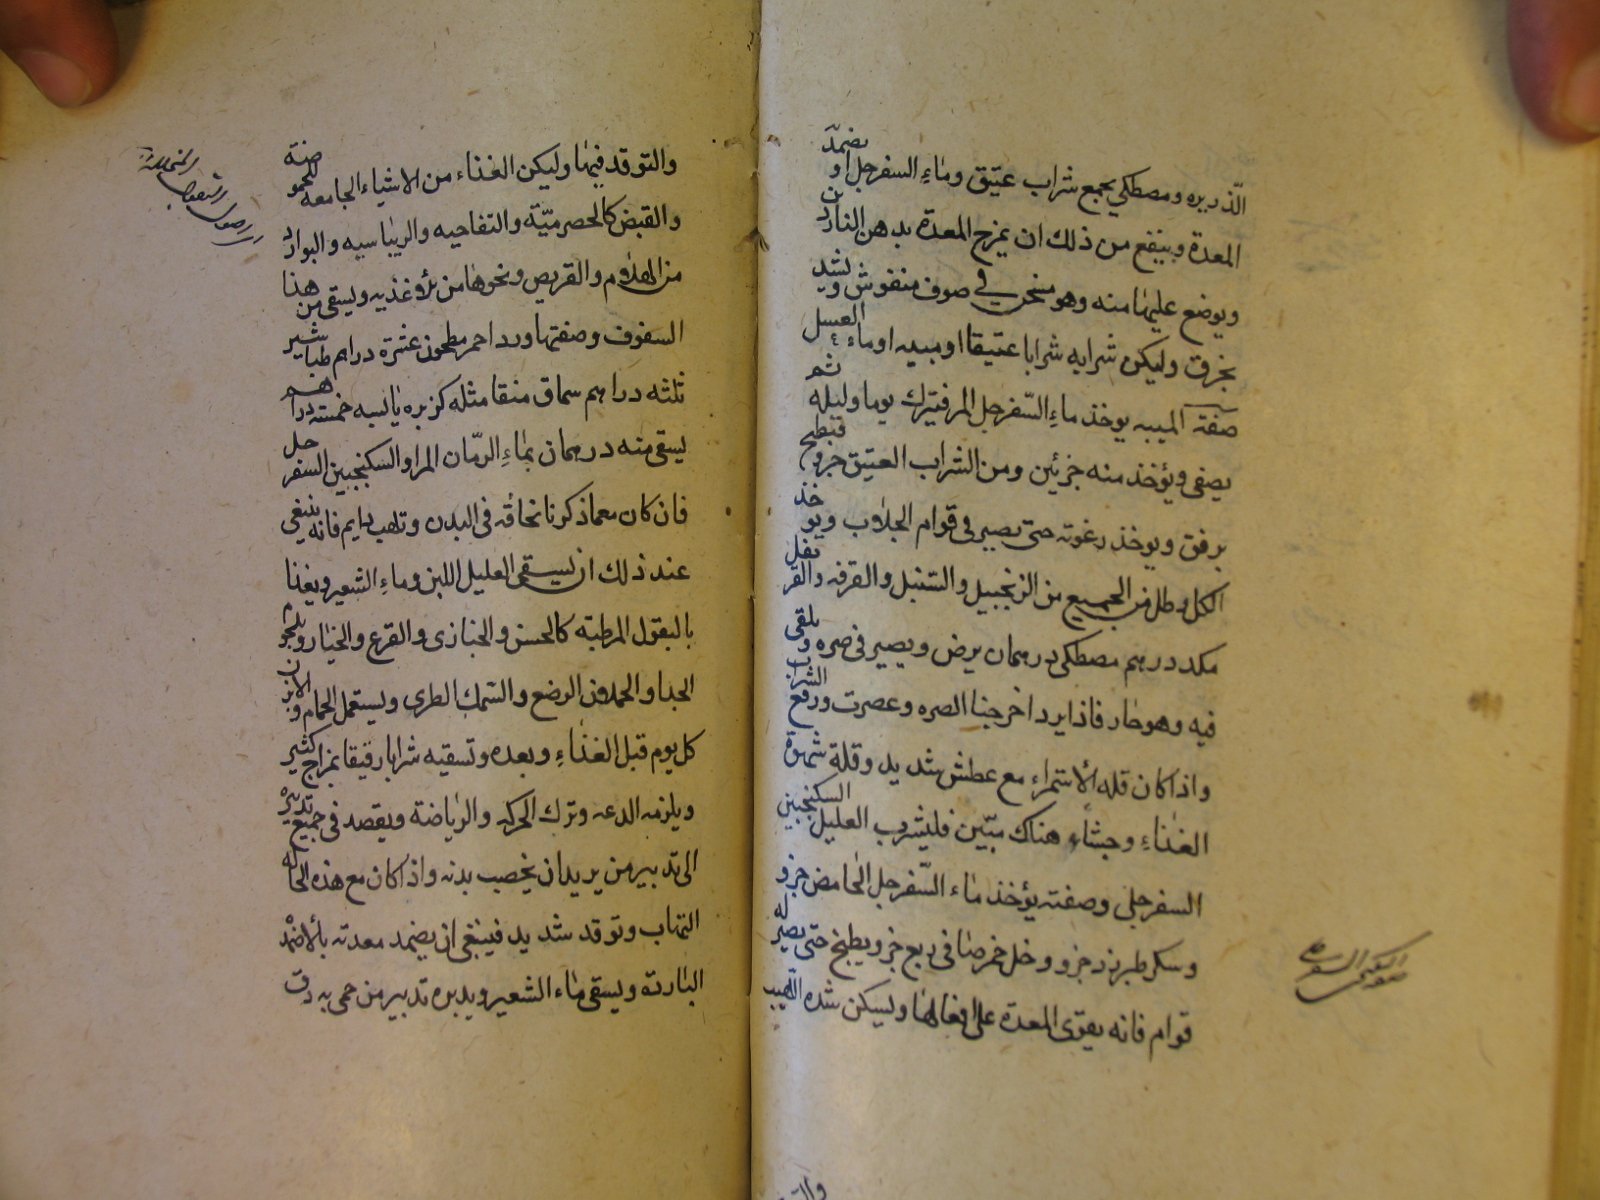 الذريره ومصطكي يجمع بشراب عتيق وماء السفرجل او يضمد
المعدة وينفع من ذلك ان يمزج المعدة بدهن الناردين
ويوضع عليها منه وهو مسخن في صوف منفوش ويشد
بخرق وليكن شرابه شرابا عتيقا او ميبه او ماء العسل
صفة الميبه يوخذ ماء السفرجل المز فيترك يوما وليله ثم
يصفى ويؤخذ منه جزئين ومن الشراب العتيق جزو فيطبخ
برفق ويوخذ رغوته حتى يصير فى قوام الجلاب ويوخذ
لكل رطل من الجميع من الزنجبيل والسنبل والقرفه والقرنفل
مكد درهم مصطكى درهمان يرض ويصير فى صره ويلقى
فيه وهو حار فاذا برد اخرجنا الصره وعصرت ورفع الشراب
واذا كان قله الاستمراء مع عطش شديد وقلة شهوة
الغذاء وجشاء هناك مبين فليشرب العليل السكنجبين
السفرجلى وصفته يؤخذ ماء السفرجل الحامض جزو
وسكر طبرزد جزو وخل خمر صافى ربع جزو يطبخ حتى يصير له
قوام فانه يقوى المعدة على افعالها ويسكن شده اللهيب
صفة السكنجبين السفرجلى
والتوقد
والتوقد فيها وليكن الغذاء من الاشياء الجامعه للحموضة
والقبض كالحصرمية والتفاحيه والريباسيه والبوارد
من الهلام والقريص ونحوها من الاغذيه ويسقى من هذا
السفوف وصفتها ورد احمر مطحون عشرة دراهم طباشير
ثلثه دراهم سماق منقا مثله كزبره يابسه خمسة دراهم
يسقى منه درهمان بماء الرمان المز او السكنجبين السفرجلى
فان كان مع ما ذكرنا نحافه فى البدن وتلهب دايم فانه ينبغى
عند ذلك ان يسقى العليل اللبن وماء الشعير ويغذا
بالبقول الرطبة كالخس والخبازى والقرع والخيار ولحوم
الجدا والحملان الرضع والسمك الطرى ويستعمل الحمام والابزن
كل يوم قبل الغذاء وبعده وتسقيه شرابا رقيقا بمزاج كثير
ويلزمه الدعه وترك الحركه والرياضة ويقصد فى جميع تدبيره
الى تدبير من يريد ان يخصب بدنه واذا كان مع هذه الحاله
التهاب وتوقد شديد فينبغى ان يضمد معدته بالاضمدة
الباردة ويسقى ماء الشعير ويدبره تدبير من حمى به دق